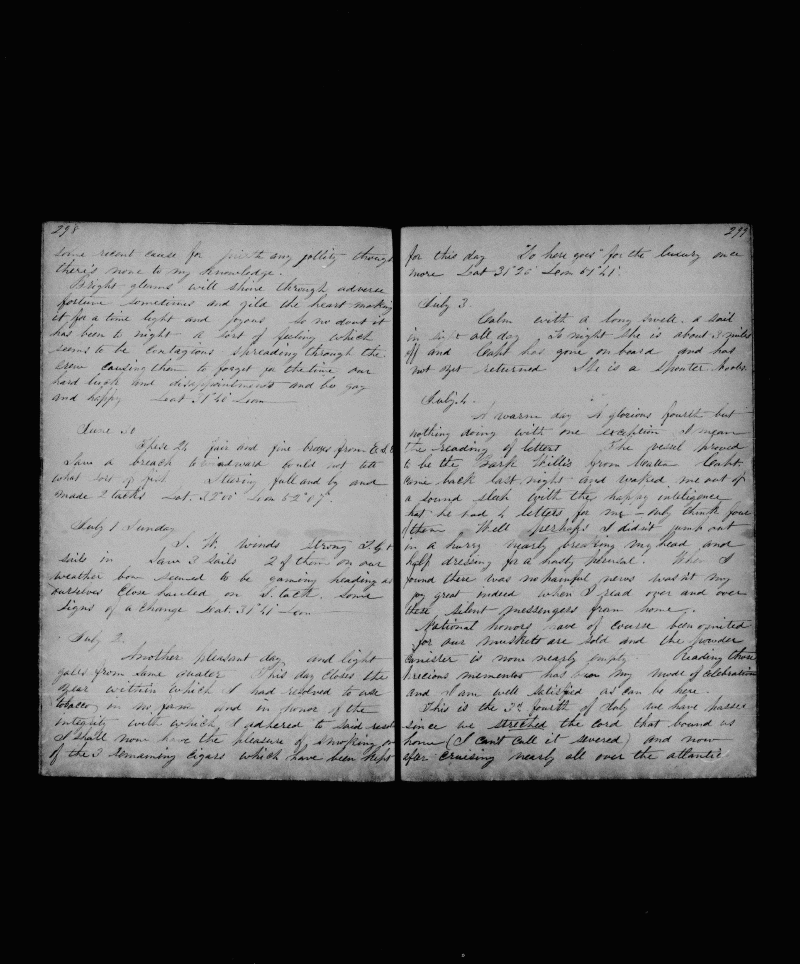 298
some recent cause for mirth any jollity though
there's none to my knowledge.
Bright gleams will shine through adverse
fortune sometimes and gild the heart making
it for a time light and joyous So no dout it
has been to night a sort of feeling which
seems to be contagious spreading through the
crew causing them to forget for the time our
hard luck and disappointments and be gay
and happy Lat 31° 40' Lon
June 30
These 24 fair and fine breezes from E.S.E
Saw a breach to windward could not tell
what sort of fish Steering full and by and
made 2 tacks Lat. 32° 00' Lon 52° 07'
July 1 Sunday
S. W. winds strong
sails in Saw 3 sails 2 of them on our
weather bow seemed to be gaming heading as
ourselves close hauled on S. tack. Some
signs of a change Lat. 31° 41' Lon
July 2.
Another pleasant day and light
gales from same quater This day closes the
year within which I had resolved to use
tobacco in no form and in honor of the
integrity with which I adhered to said
I shall now have the pleasure of smoking
of the 3 remaining cigars which have been kept
299
for this day "So here goes" for the luxury once
more Lat 31° 25' Lon 51° 41'
July 3.
Calm with a long swell. a sail
in sight all day To night she is about 3 miles
off and Capt has gone on board and has
not yet returned She is a Sperm
July 4.
A warm day A glorious fourth but
nothing doing with one exception I mean
the reading of letters The vessel proved
to be the Bark Willis from Capt
come back last night and waked me out of
a sound sleep with the happy inteligence
that he had 4 letters for me — only think four
of them Well perhaps I didn't jump out
in a hurry nearly breaking my head and
half dressing for a hasty perusal. When I
found there was no harmful news wasn't my
joy great indeed when I read over and over
these silent messengers from home.
National honors have of course been omited
for our muskets are sold and the powder
canister is now nearly empty Reading those
precious mementos has been my mode of celebration
and I am well satisfied as can be here.
This is the 3d fourth of July we have passed
since we streched the cord that bound us
home (I can't call it severed) and now
after cruising nearly all over the atlantic